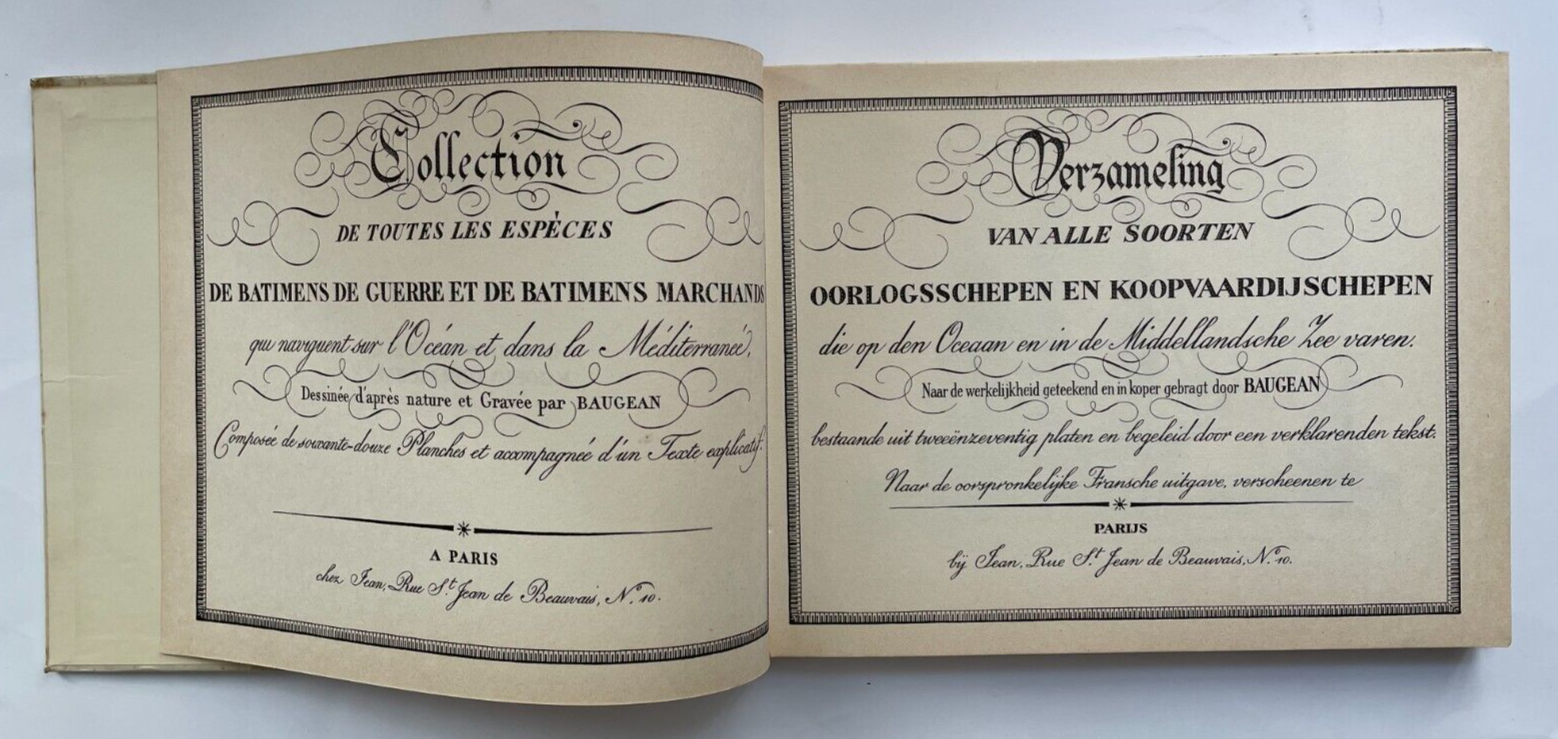 Collection
DE TOUTES LES ESPÈCES
DE BATIMENS DE GUERRE ET DE BATIMENS MARCHANDS
qui naviguent sur l'Océan et dans la Méditerranée,
Dessinée d'après nature et Gravée par BAUGEAN
Composée de soixante-douze Planches et accompagnée d'un Texte explicatif.
A PARIS
chez Jean, Rue St. Jean de Beauvais, No. 10.
Verzameling
VAN ALLE SOORTEN
OORLOGSSCHEPEN EN KOOPVAARDIJSCHEPEN
die op den Oceaan en in de Middellandsche Zee varen.
Naar de werkelijkheid geteekend en in koper gebragt door BAUGEAN
bestaande uit tweeënzeventig platen en begeleid door een verklarenden tekst.
Naar de oorspronkelijke Fransche uitgave, verscheenen te
PARIJS
bij Jean, Rue St. Jean de Beauvais, No. 10.